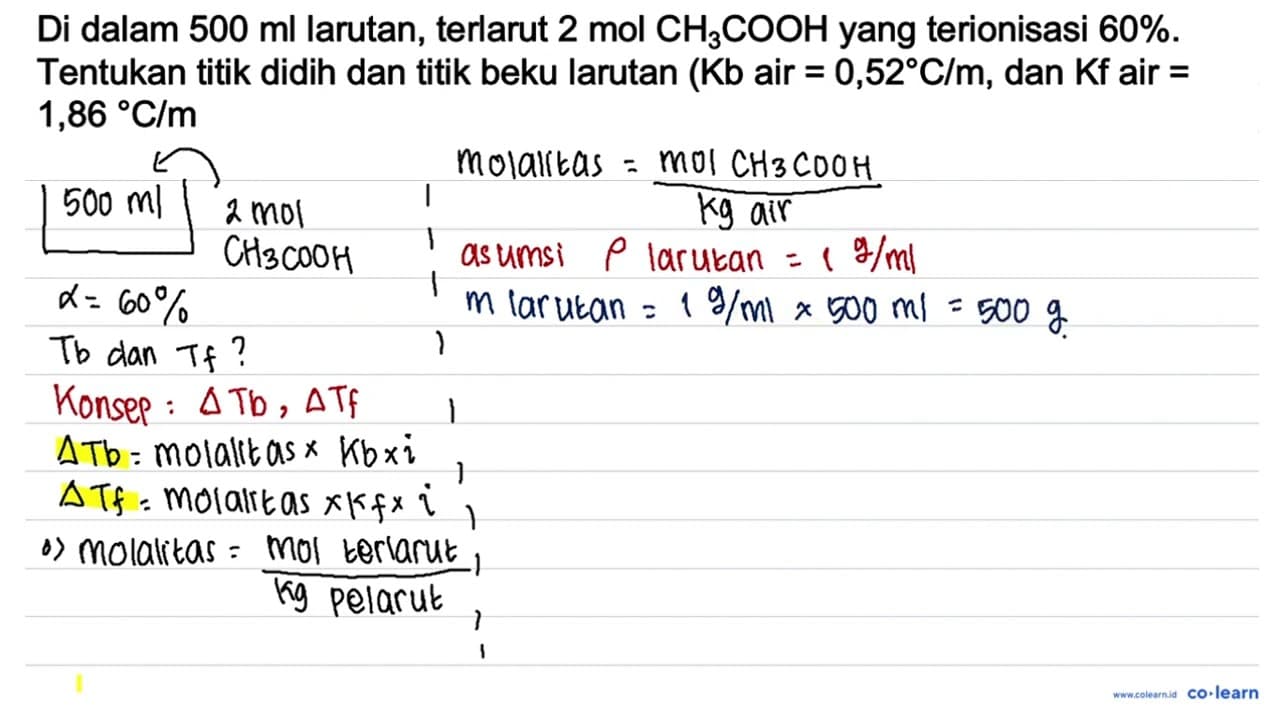 Di dalam 500 ml larutan, terlarut 2 mol CH₃COOH yang terionisasi 60%.
Tentukan titik didih dan titik beku larutan (Kb air = 0,52°C/m, dan Kf air =
1,86 °C/m
500 ml
2 mol
CH3COOH
α = 60%
Tb dan Tf ?
Konsep : ΔTb, ΔTf
ΔTb = molalitas x Kb x i
ΔTf = molalitas x Kf x i
•) molalitas = mol terlarut
kg pelarut
molalitas = mol CH3COOH
kg air
asumsi ρ larutan = 1 g/ml
m larutan = 1 g/ml x 500 ml = 500 g.
www.colearn.id co·learn